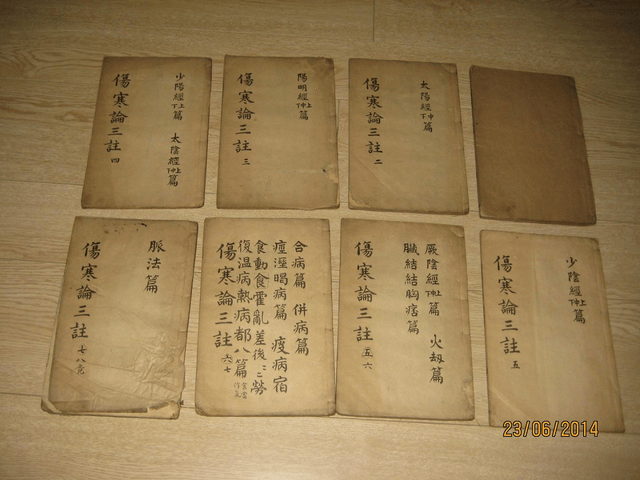 少陽經上下篇
太陰經上中下篇
傷寒論三註 四
陽明經上中下篇
傷寒論三註 三
太陽經中下篇
傷寒論三註 二
脈法篇
傷寒論三註 七八
合病篇 併病篇
痙溼暍病篇 痰病宿
食動食霍亂差後勞
復溫病熱病都八篇
傷寒論三註 六七
厥陰經上中下篇 火劫篇
臟結結胸痞篇
傷寒論三註 五六
少陰經上中下篇
傷寒論三註 五
23/06/2014